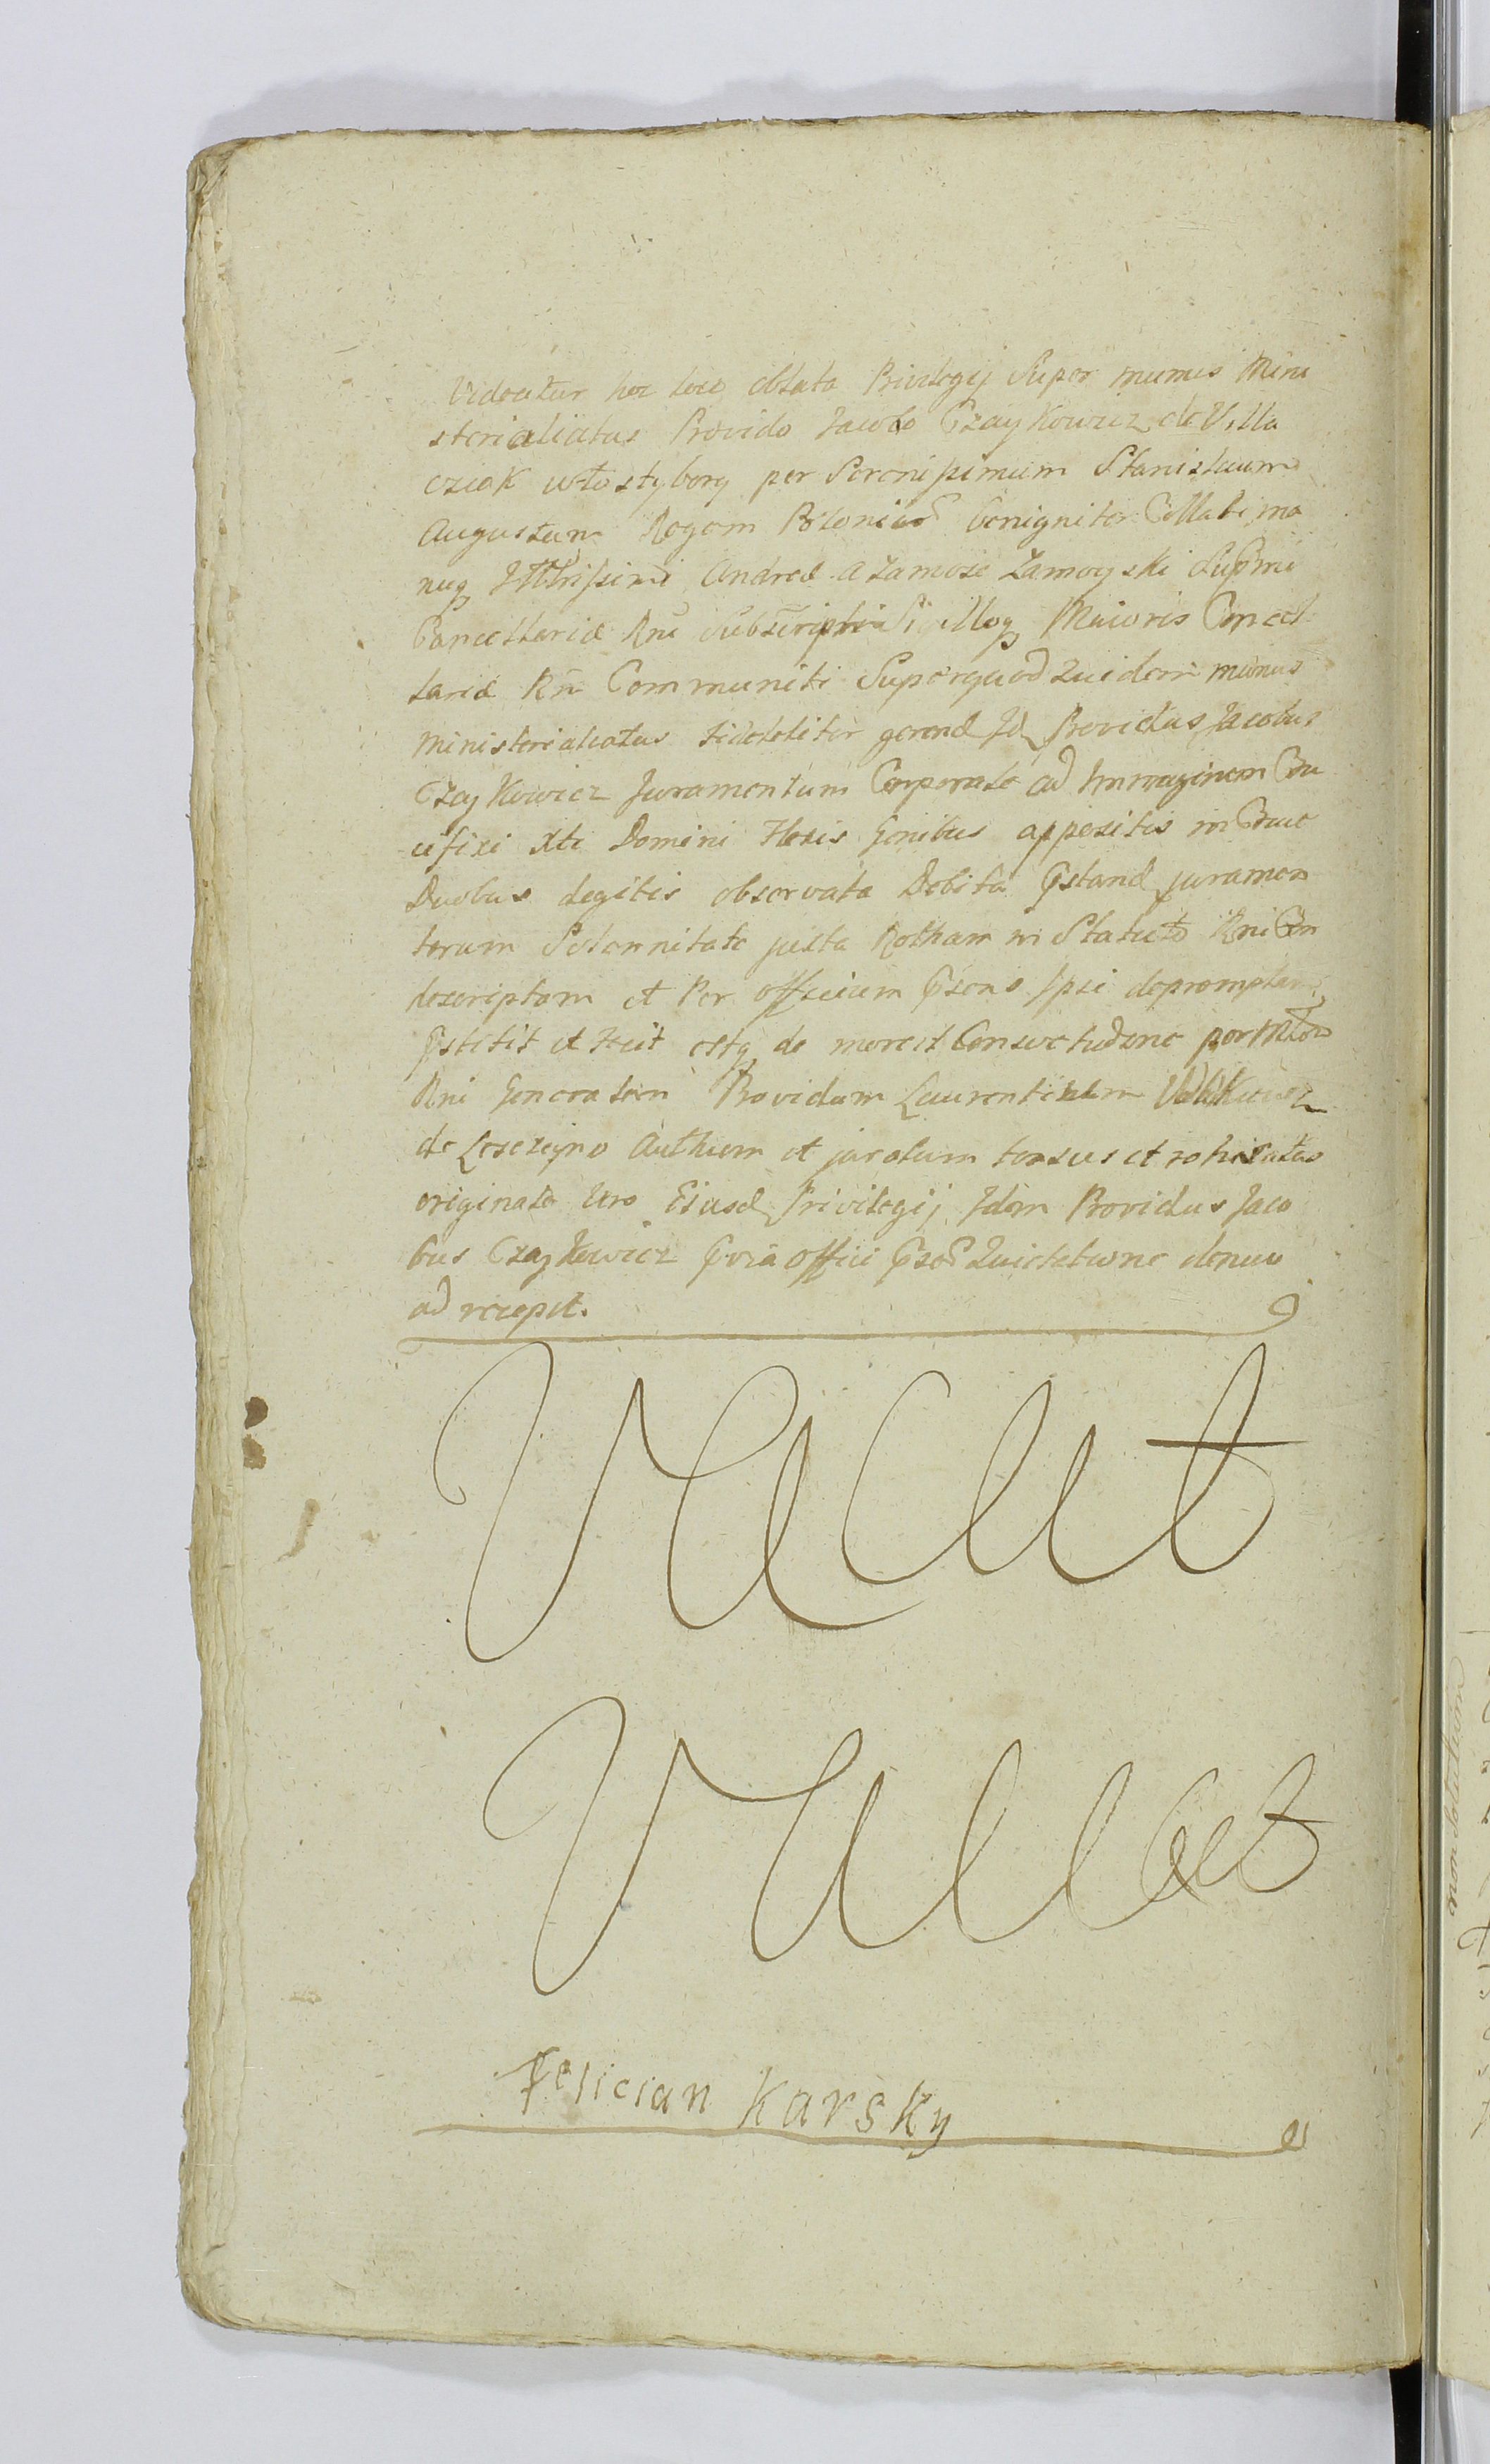 Videatur hoc loco oblata Privilegij Super munus Mini
sterialiatus Provido Jacobo Czaykowicz de Villa
osiek włostybory per Serenissimum Stanislaum
Augustum Regem Poloniae benigniter Collati ma
nuq Illrissimi Andreæ a Zamosc Zamoyski Supmi
Cancellariæ Rni subscripti Sigilloq Maioris Cancel
lariæ Rni Communiti Super quod quidem munus
Ministerialiatus fideliter gerend Id Providus Jacobus
Czaykowicz Juramentum Corporale ad Immaginem Cru
cifixi Xti Domini Flexis genibus appositis in Cruce
Duobus degitis observata Debita pstand juramen
torum Solennitate juxta Rotham in Statuto Rni
descriptam et Per officium psens Ipsi depromptam
pstitit et fecit estq de more et Consvetudine per
Rni Generalem Providum Laurentium
de Leszczyno Authem et juratum
originale vero Eiusd Privilegij Idem Providus Jaco
bus Czaykowicz officii Quietatione denuo
ad recepit.
Vacat
Vacat
Felician Karsky